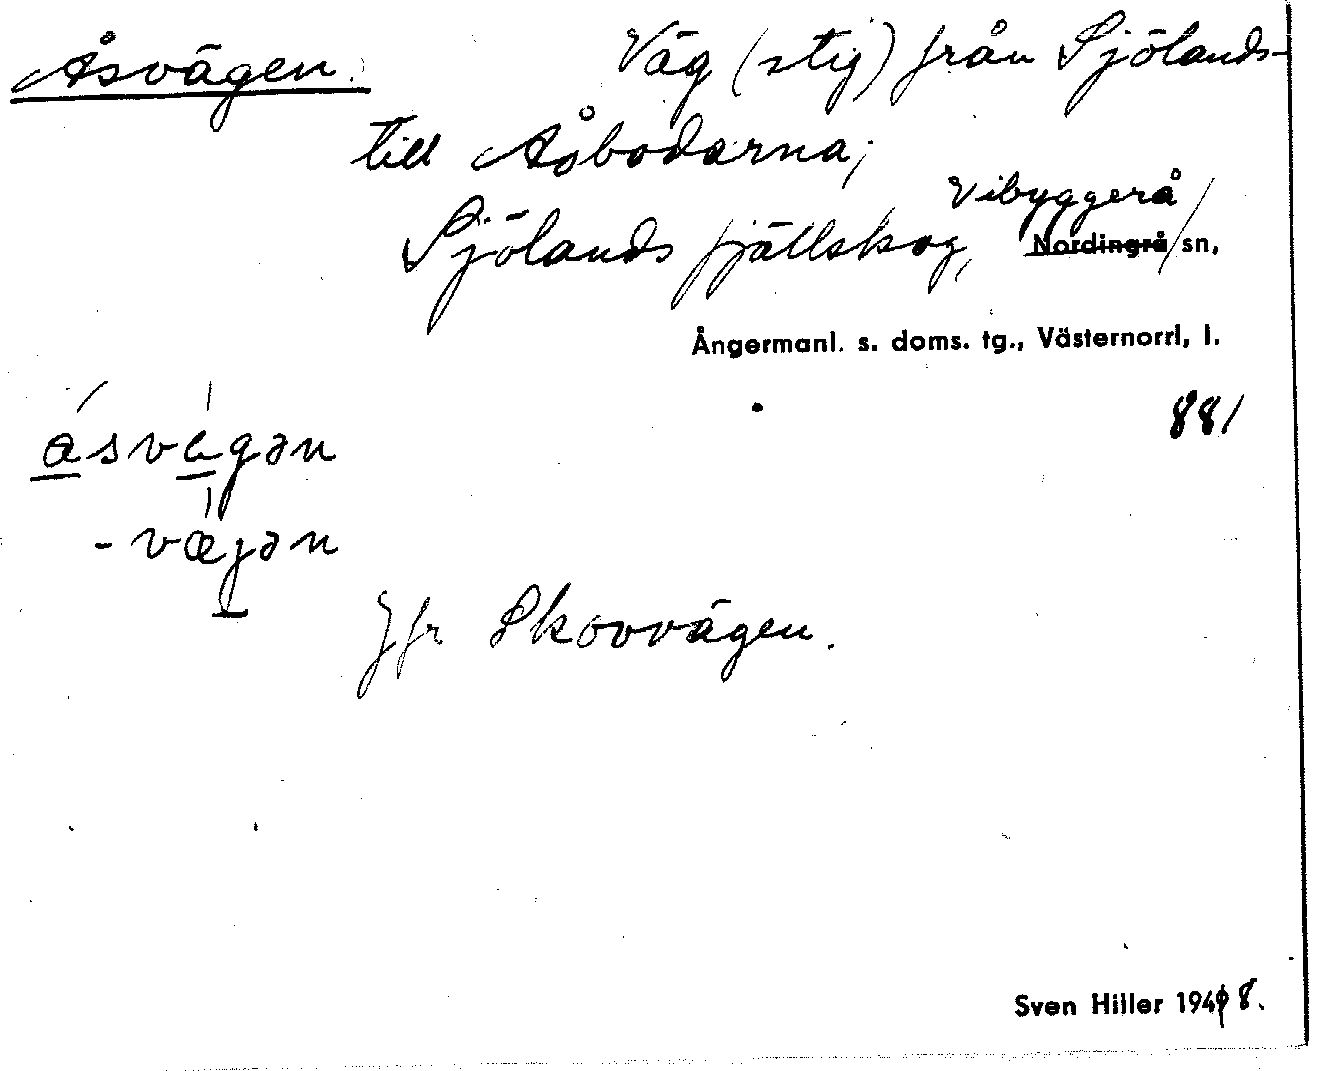 Åsvägen. Väg (stig) från Sjölands-
till Åsbodarna;
Sjölands fjällskog, Vibyggerå
Nordingrå/sn,
Ångermanl. s. doms. tg., Västernorrl, l.
881
åsvägən
-væjən
Jfr Skovvägen.
Sven Hiller 1948.